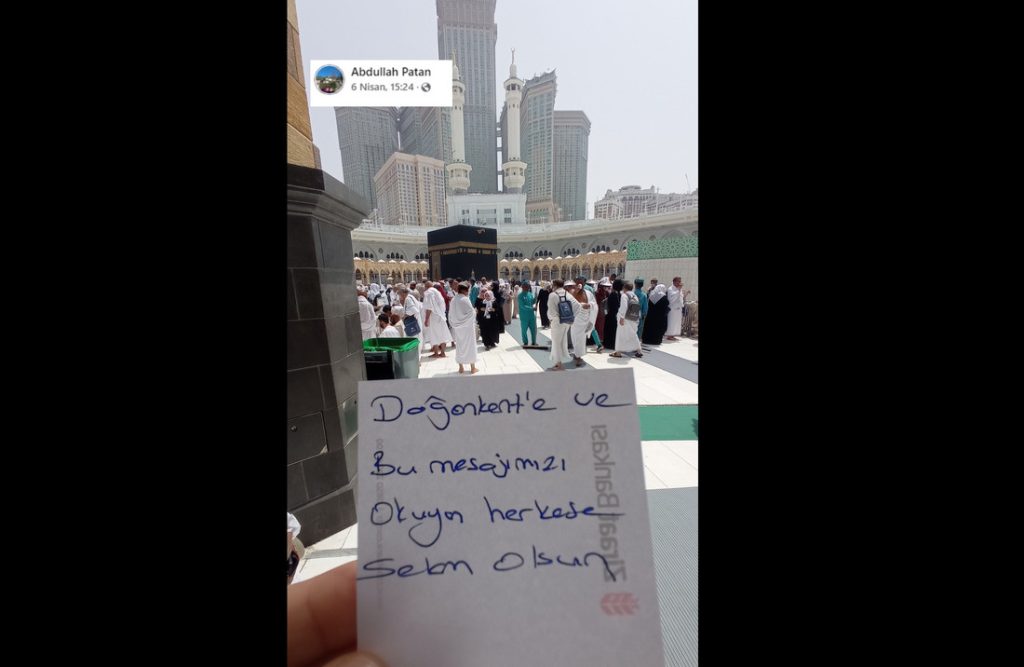 Abdullah Patan
6 Nisan, 15:24
Doğankent'e ve
Bu mesajımızı
Okuyan herkese
Selam Olsun
Ziraat Bankası